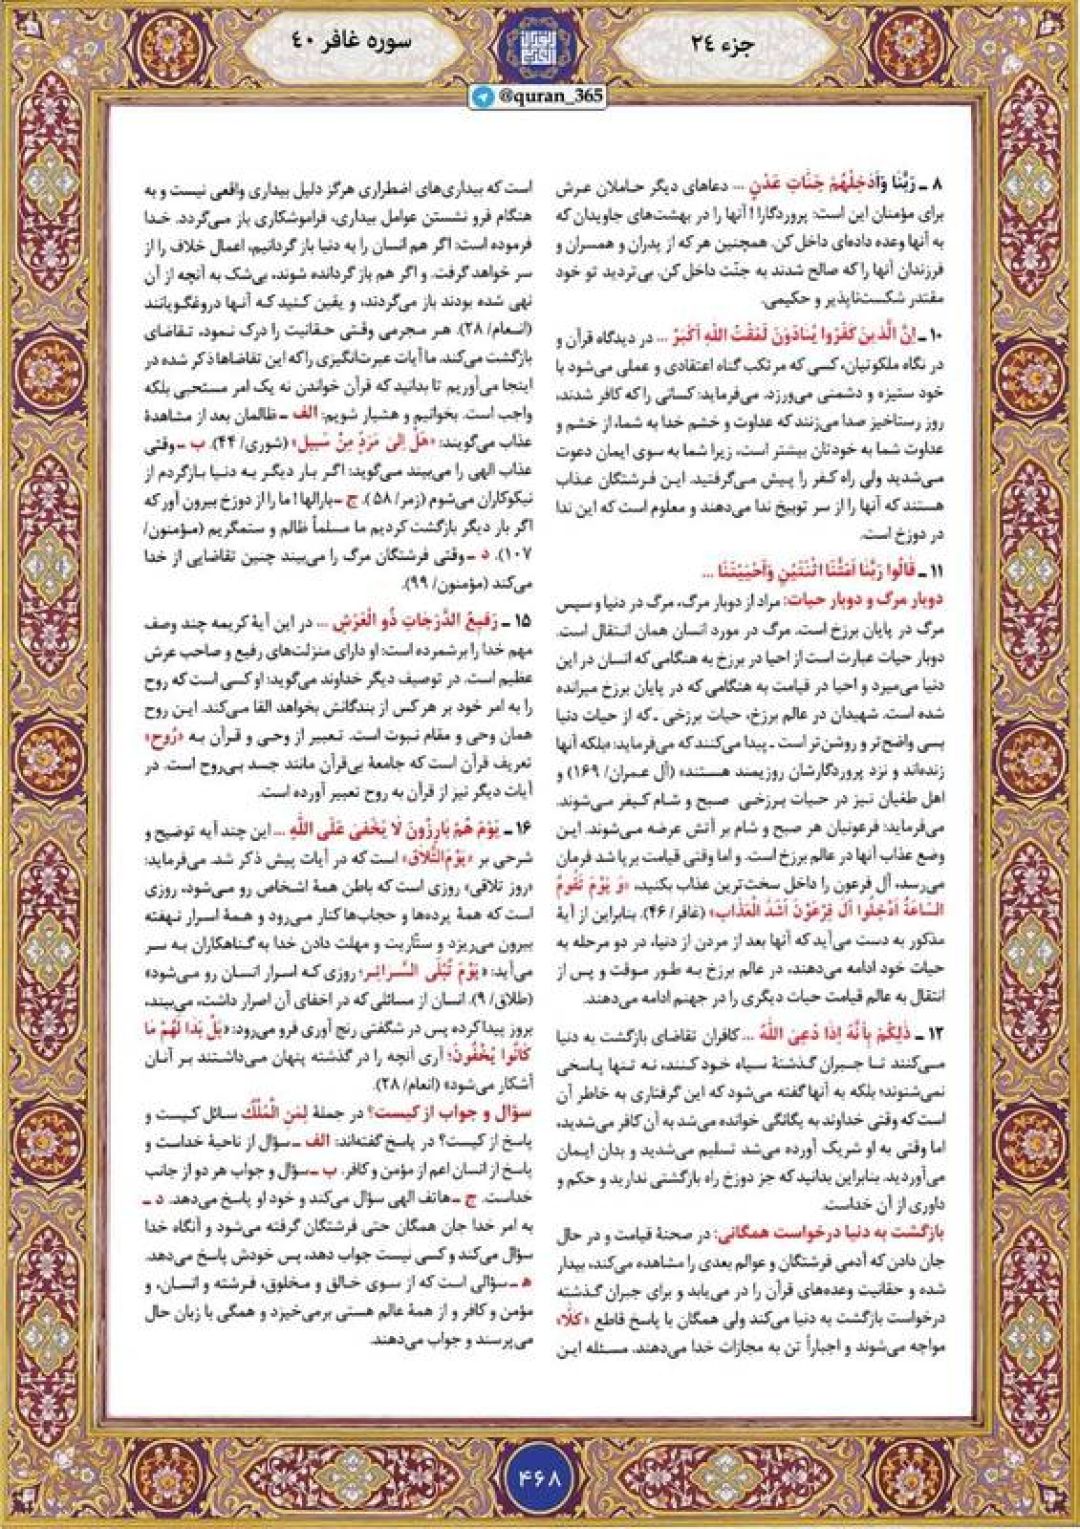 جزء ۲۴
سوره غافر ۴۰
@quran_365
۸ ـ رَبَّنَا وَأَدْخِلْهُمْ جَنَّاتِ عَدْنٍ ... دعاهای دیگر حاملان عرش
برای مؤمنان این است: پروردگارا! آنها را در بهشت‌های جاویدان که
به آنها وعده داده‌ای داخل کن. همچنین هر که از پدران و همسران و
فرزندان آنها را که صالح شدند به جنّت داخل کن. بی‌تردید تو خود
مقتدر شکست‌ناپذیر و حکیمی.
۱۰ ـ اِنَّ الَّذینَ کَفَرُوا یُنادَوْنَ لَمَقْتُ اللهِ اَکْبَرُ ... در دیدگاه قرآن و
در نگاه ملکوتیان، کسی که مرتکب گناه اعتقادی و عملی می‌شود با
خود ستیزه و دشمنی می‌ورزد. می‌فرماید: کسانی را که کافر شدند،
روز رستاخیز صدا می‌زنند که عداوت و خشم خدا به شما، از خشم و
عداوت شما به خودتان بیشتر است، زیرا شما به سوی ایمان دعوت
می‌شدید ولی راه کفر را پیش می‌گرفتید. این فرشتگان عذاب
هستند که آنها را از سر توبیخ ندا می‌دهند و معلوم است که این ندا
در دوزخ است.
۱۱ ـ قَالُوا رَبَّنَا اَمَتَّنَا اثْنَتَیْنِ وَاَحْیَیْتَنَا ...
دوبار مرگ و دوبار حیات: مراد از دوبار مرگ، مرگ در دنیا و سپس
مرگ در پایان برزخ است. مرگ در مورد انسان همان انتقال است.
دوبار حیات عبارت است از احیا در برزخ به هنگامی که انسان در این
دنیا می‌میرد و احیا در قیامت به هنگامی که در پایان برزخ میرانده
شده است. شهیدان در عالم برزخ، حیات برزخی ـ که از حیات دنیا
بسی واضح‌تر و روشن‌تر است ـ پیدا می‌کنند که می‌فرماید: «بلکه آنها
زنده‌اند و نزد پروردگارشان روزیمند هستند» (آل عمران/ ۱۶۹) و
اهل طغیان نیز در حیات برزخی صبح و شام کیفر می‌شوند.
می‌فرماید: فرعونیان هر صبح و شام بر آتش عرضه می‌شوند. این
وضع عذاب آنها در عالم برزخ است. و اما وقتی قیامت برپا شد فرمان
می‌رسد، آل فرعون را داخل سخت‌ترین عذاب بکنید، «وَ یَوْمَ تَقُومُ
السّاعَةُ اَدْخِلُوا آلَ فِرْعَوْنَ اَشَدَّ الْعَذابِ» (غافر/ ۴۶). بنابراین از آیهٔ
مذکور به دست می‌آید که آنها بعد از مردن از دنیا، در دو مرحله به
حیات خود ادامه می‌دهند، در عالم برزخ به طور موقت و پس از
انتقال به عالم قیامت حیات دیگری را در جهنم ادامه می‌دهند.
۱۲ ـ ذٰلِکُمْ بِأَنَّهُ اِذَا دُعِیَ اللهُ ... کافران تقاضای بازگشت به دنیا
می‌کنند تا جبران گذشتهٔ سیاه خود کنند، نه تنها پاسخی
نمی‌شنوند؛ بلکه به آنها گفته می‌شود که این گرفتاری به خاطر آن
است که وقتی خداوند به یگانگی خوانده می‌شد به آن کافر می‌شدید،
اما وقتی به او شریک آورده می‌شد تسلیم می‌شدید و بدان ایمان
می‌آوردید. بنابراین بدانید که جز دوزخ راه بازگشتی ندارید و حکم و
داوری از آن خداست.
بازگشت به دنیا درخواست همگانی: در صحنهٔ قیامت و در حال
جان دادن که آدمی فرشتگان و عوالم بعدی را مشاهده می‌کند، بیدار
شده و حقانیت وعده‌های قرآن را در می‌یابد و برای جبران گذشته
درخواست بازگشت به دنیا می‌کند ولی همگان با پاسخ قاطع «کَلّا»
مواجه می‌شوند و اجباراً تن به مجازات خدا می‌دهند. مسئله این
است که بیداری‌های اضطراری هرگز دلیل بیداری واقعی نیست و به
هنگام فرو نشستن عوامل بیداری، فراموشکاری باز می‌گردد. خدا
فرموده است: اگر هم انسان را به دنیا باز گردانیم، اعمال خلاف را از
سر خواهد گرفت. و اگر هم باز گردانده شوند، بی‌شک به آنچه از آن
نهی شده بودند باز می‌گردند، و یقین کنید که آنها دروغگویانند
(انعام/ ۲۸). هر مجرمی وقتی حقانیت را درک نمود، تقاضای
بازگشت می‌کند. ما آیات عبرت‌انگیزی را که این تقاضاها ذکر شده در
اینجا می‌آوریم تا بدانید که قرآن خواندن نه یک امر مستحبی بلکه
واجب است. بخوانیم و هشیار شویم: الف ـ ظالمان بعد از مشاهدهٔ
عذاب می‌گویند: «هَلْ اِلیٰ مَرَدٍّ مِنْ سَبیلٍ» (شوری/ ۴۴). ب ـ وقتی
عذاب الهی را می‌بیند می‌گوید: اگر بار دیگر به دنیا بازگردم از
نیکوکاران می‌شوم (زمر/ ۵۸). ج ـ بارالها! ما را از دوزخ بیرون آور که
اگر بار دیگر بازگشت کردیم ما مسلماً ظالم و ستمگریم (مؤمنون/
۱۰۷). د ـ وقتی فرشتگان مرگ را می‌بیند چنین تقاضایی از خدا
می‌کند (مؤمنون/ ۹۹).
۱۵ ـ رَفیعُ الدَّرَجَاتِ ذُو الْعَرْشِ ... در این آیهٔ کریمه چند وصف
مهم خدا را برشمرده است: او دارای منزلت‌های رفیع و صاحب عرش
عظیم است. در توصیف دیگر خداوند می‌گوید: او کسی است که روح
را به امر خود بر هر کس از بندگانش بخواهد القا می‌کند. این روح
همان وحی و مقام نبوت است. تعبیر از وحی و قرآن به «رُوح»
تعریف قرآن است که جامعهٔ بی‌قرآن مانند جسد بی‌روح است. در
آیات دیگر نیز از قرآن به روح تعبیر آورده است.
۱۶ ـ یَوْمَ هُمْ بَارِزُونَ لَا یَخْفیٰ عَلَی اللهِ ... این چند آیه توضیح و
شرحی بر «یَوْمَ التَّلَاقِ» است که در آیات پیش ذکر شد. می‌فرماید:
«روز تلاقی» روزی است که باطن همهٔ اشخاص رو می‌شود، روزی
است که همهٔ پرده‌ها و حجاب‌ها کنار می‌رود و همهٔ اسرار نهفته
بیرون می‌ریزد و ستّاریت و مهلت دادن خدا به گناهکاران به سر
می‌آید: «یَوْمَ تُبْلَی السَّرائِر؛ روزی که اسرار انسان رو می‌شود»
(طلاق/ ۹). انسان از مسائلی که در اخفای آن اصرار داشت، می‌بیند،
بروز پیدا کرده پس در شگفتی رنج آوری فرو می‌رود: «بَلْ بَدا لَهُمْ مَا
کَانُوا یُخْفُونَ؛ آری آنچه را در گذشته پنهان می‌داشتند بر آنان
آشکار می‌شود» (انعام/ ۲۸).
سؤال و جواب از کیست؟ در جملهٔ لِمَنِ الْمُلْكُ سائل کیست و
پاسخ از کیست؟ در پاسخ گفته‌اند: الف ـ سؤال از ناحیهٔ خداست و
پاسخ از انسان اعم از مؤمن و کافر. ب ـ سؤال و جواب هر دو از جانب
خداست. ج ـ هاتف الهی سؤال می‌کند و خود او پاسخ می‌دهد. د ـ
به امر خدا جان همگان حتی فرشتگان گرفته می‌شود و آنگاه خدا
سؤال می‌کند و کسی نیست جواب دهد، پس خودش پاسخ می‌دهد.
هـ ـ سؤالی است که از سوی خالق و مخلوق، فرشته و انسان، و
مؤمن و کافر و از همهٔ عالم هستی برمی‌خیزد و همگی با زبان حال
می‌پرسند و جواب می‌دهند.
۴۶۸